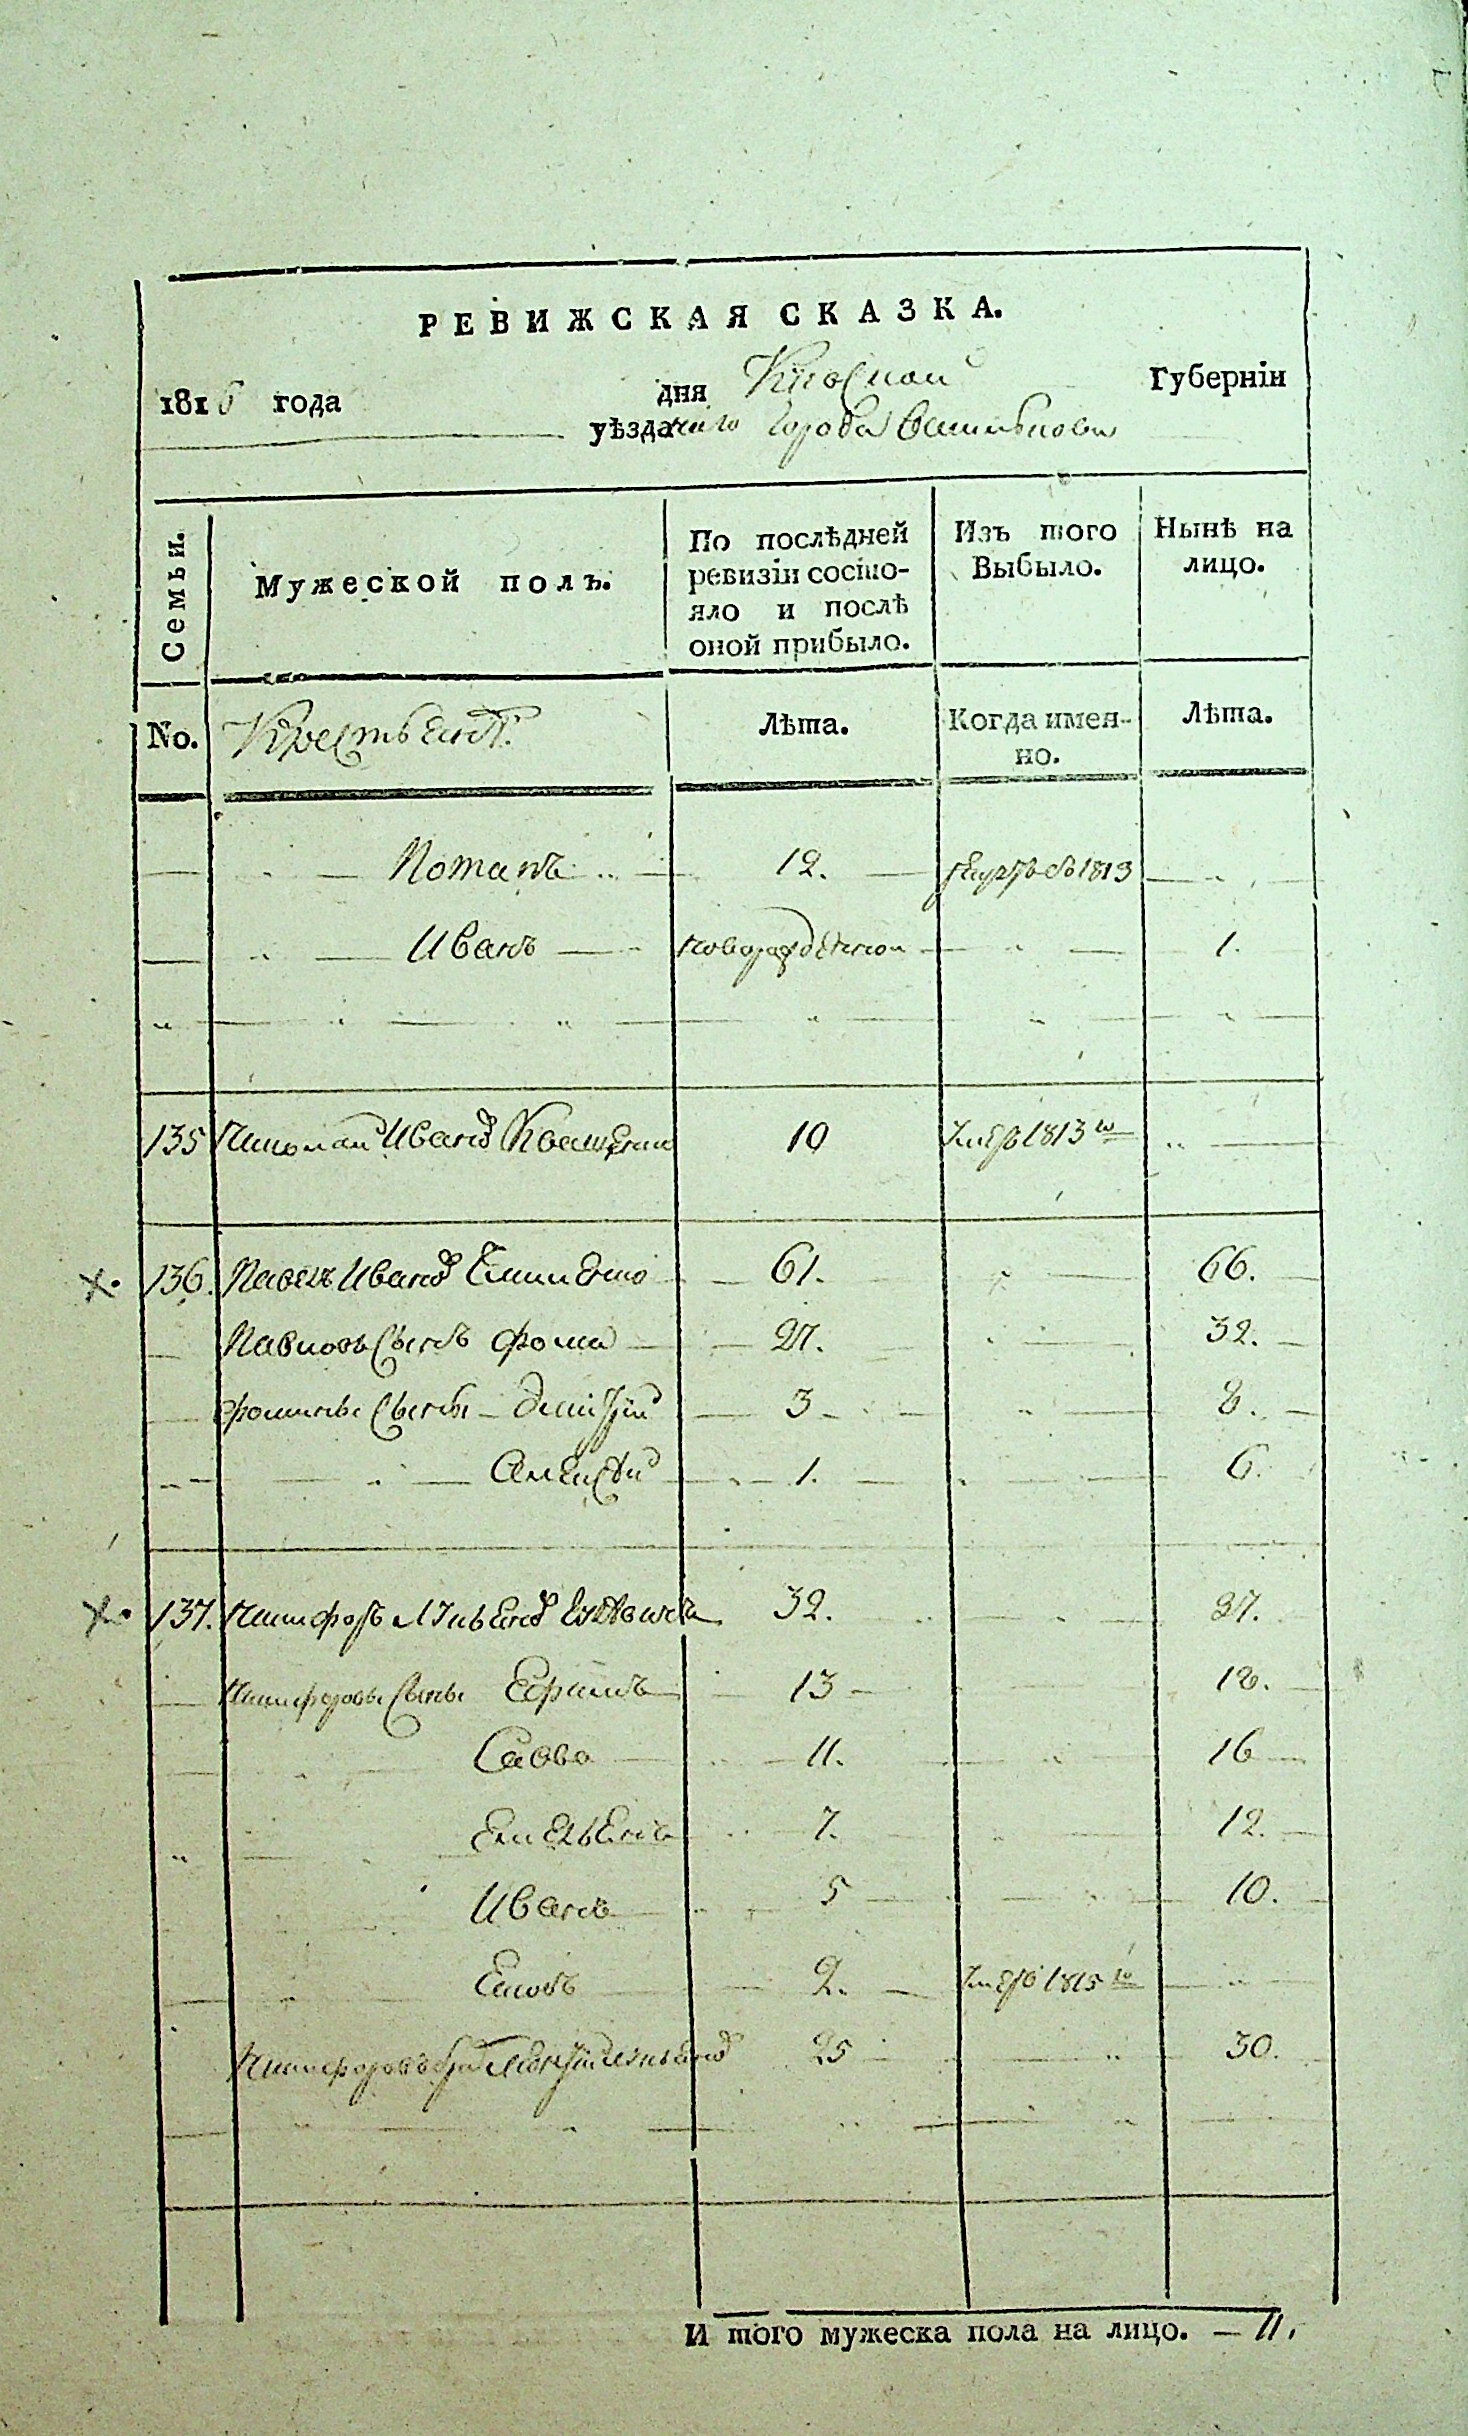 РЕВИЖСКАЯ СКАЗКА.
1816 года дня Губернїи
уѣзда города
Семьи.
Мужеской полъ.
По послѣдней ревизїи состояло и послѣ оной прибыло.
Изъ того Выбыло.
Нынѣ на лицо.
No. Крестьянъ. Лѣта. Когда именно. Лѣта.
Потапъ 12. 1813
Иванъ новорожденной 1.
135 Николай Иванов 10 умер 1813 го
136. Павелъ Иванов 61. 66.
Павловъ сынъ Фома 27. 32.
Фомины сыны Дмитрїй 3 8.
Алексѣй 1. 6.
137. Никифоръ 32. 37.
Никифоровы сыны Ефимъ 13 18.
Савва 11. 16
Емельенъ 7. 12.
Иванъ 5 10.
2. умер 1815 го
Никифоровъ брат 25 30.
И того мужеска пола на лицо. — 11.